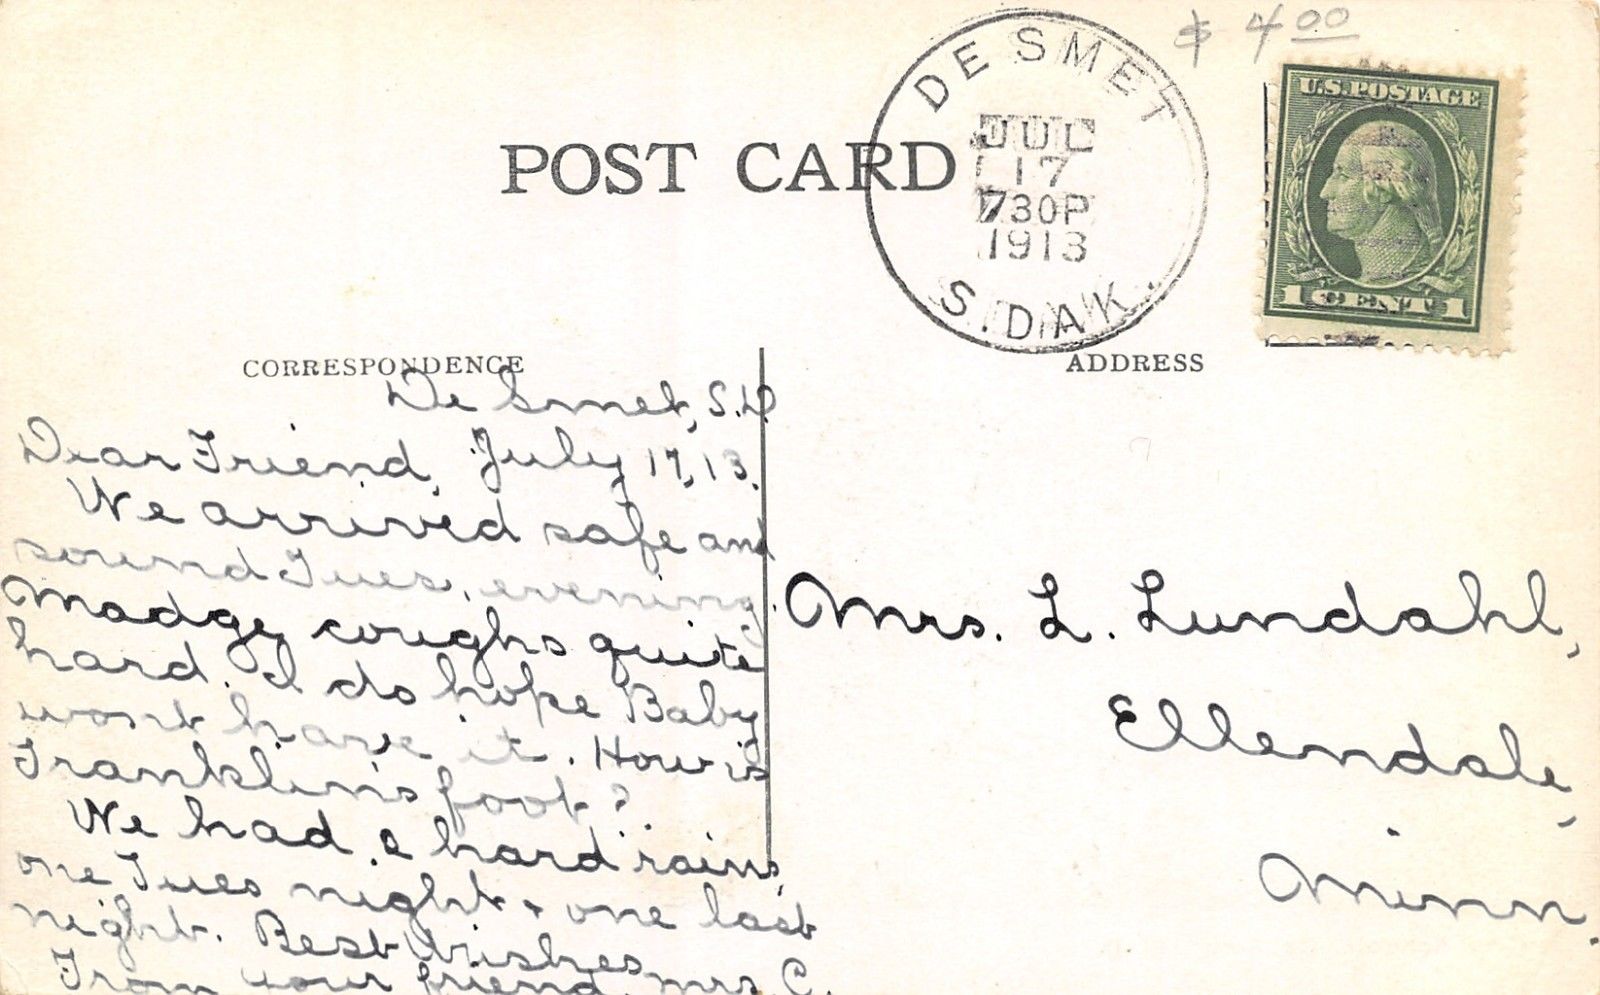 $ 4.00
DE SMET
JUL
17
730P
1913
S. DAK.
U.S. POSTAGE
1 CENT 1
POST CARD
CORRESPONDENCE
De Smet, S.D.
Dear Friend, July 17, 13.
We arrived safe and
sound Tues. evening.
Madge coughs quite
hard. I do hope Baby
won't have it. How is
Franklin's foot?
We had 2 hard rains,
one Tues night + one last
night. Best Wishes
From your friend, Mrs. C.
ADDRESS
Mrs. L. Lundahl,
Ellendale,
Minn.